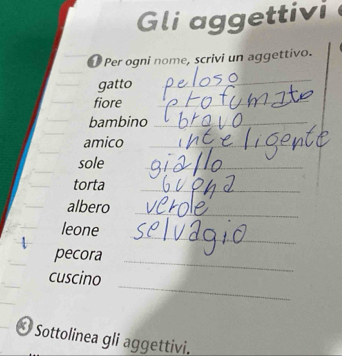 Gli aggettivi
1 Per ogni nome, scrivi un aggettivo.
gatto peloso
fiore profumato
bambino bravo
amico inteligente
sole giallo
torta buona
albero verde
leone selvagio
pecora
cuscino
3 Sottolinea gli aggettivi.